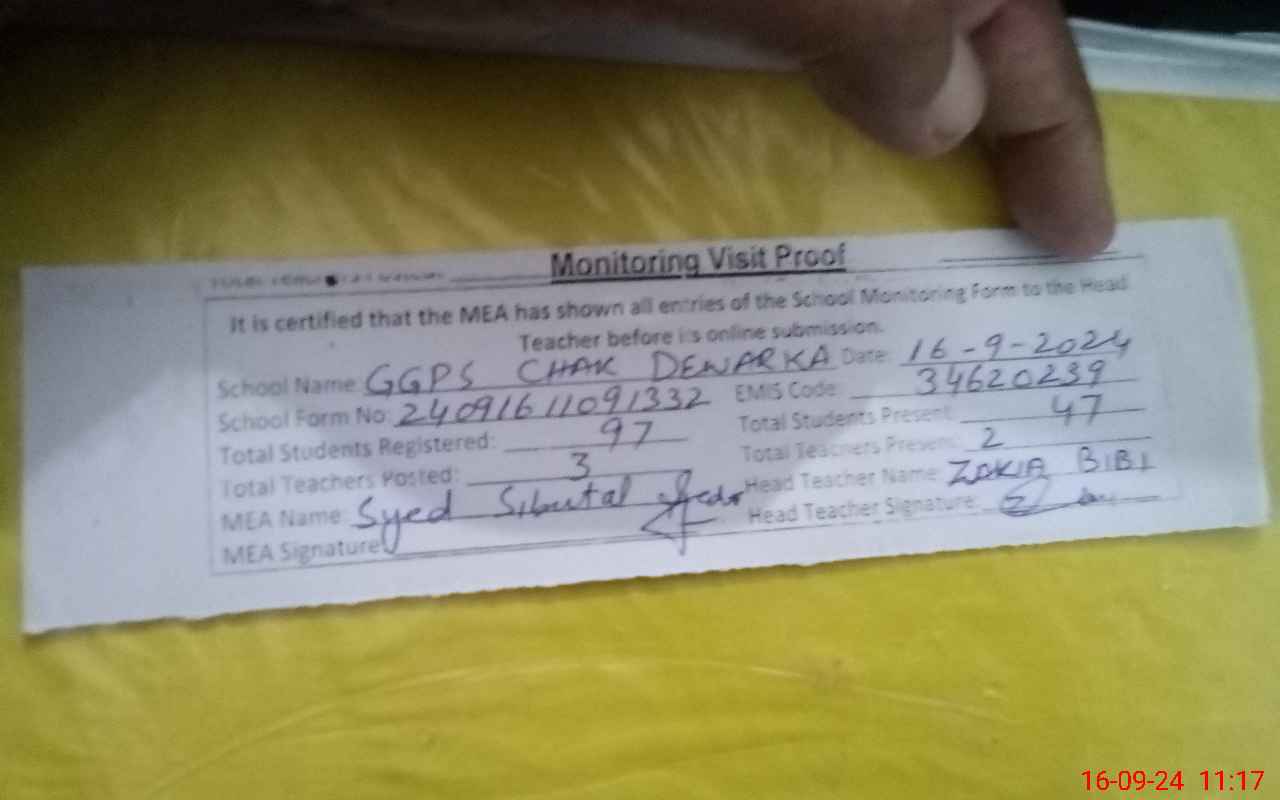 Monitoring Visit Proof
It is certified that the MEA has shown all entries of the School Monitoring Form to the Head
Teacher before its online submission.
School Name: GGPS CHAK DEWARKA Date: 16-9-2024
School Form No: 24091611091332 EMIS Code: 34620239
Total Students Registered: 97 Total Students Present: 47
Total Teachers Posted: 3 Total Teachers Present: 2
MEA Name: Syed Sibutal Head Teacher Name: ZAKIA BIBI
MEA Signature: Head Teacher Signature:
16-09-24 11:17